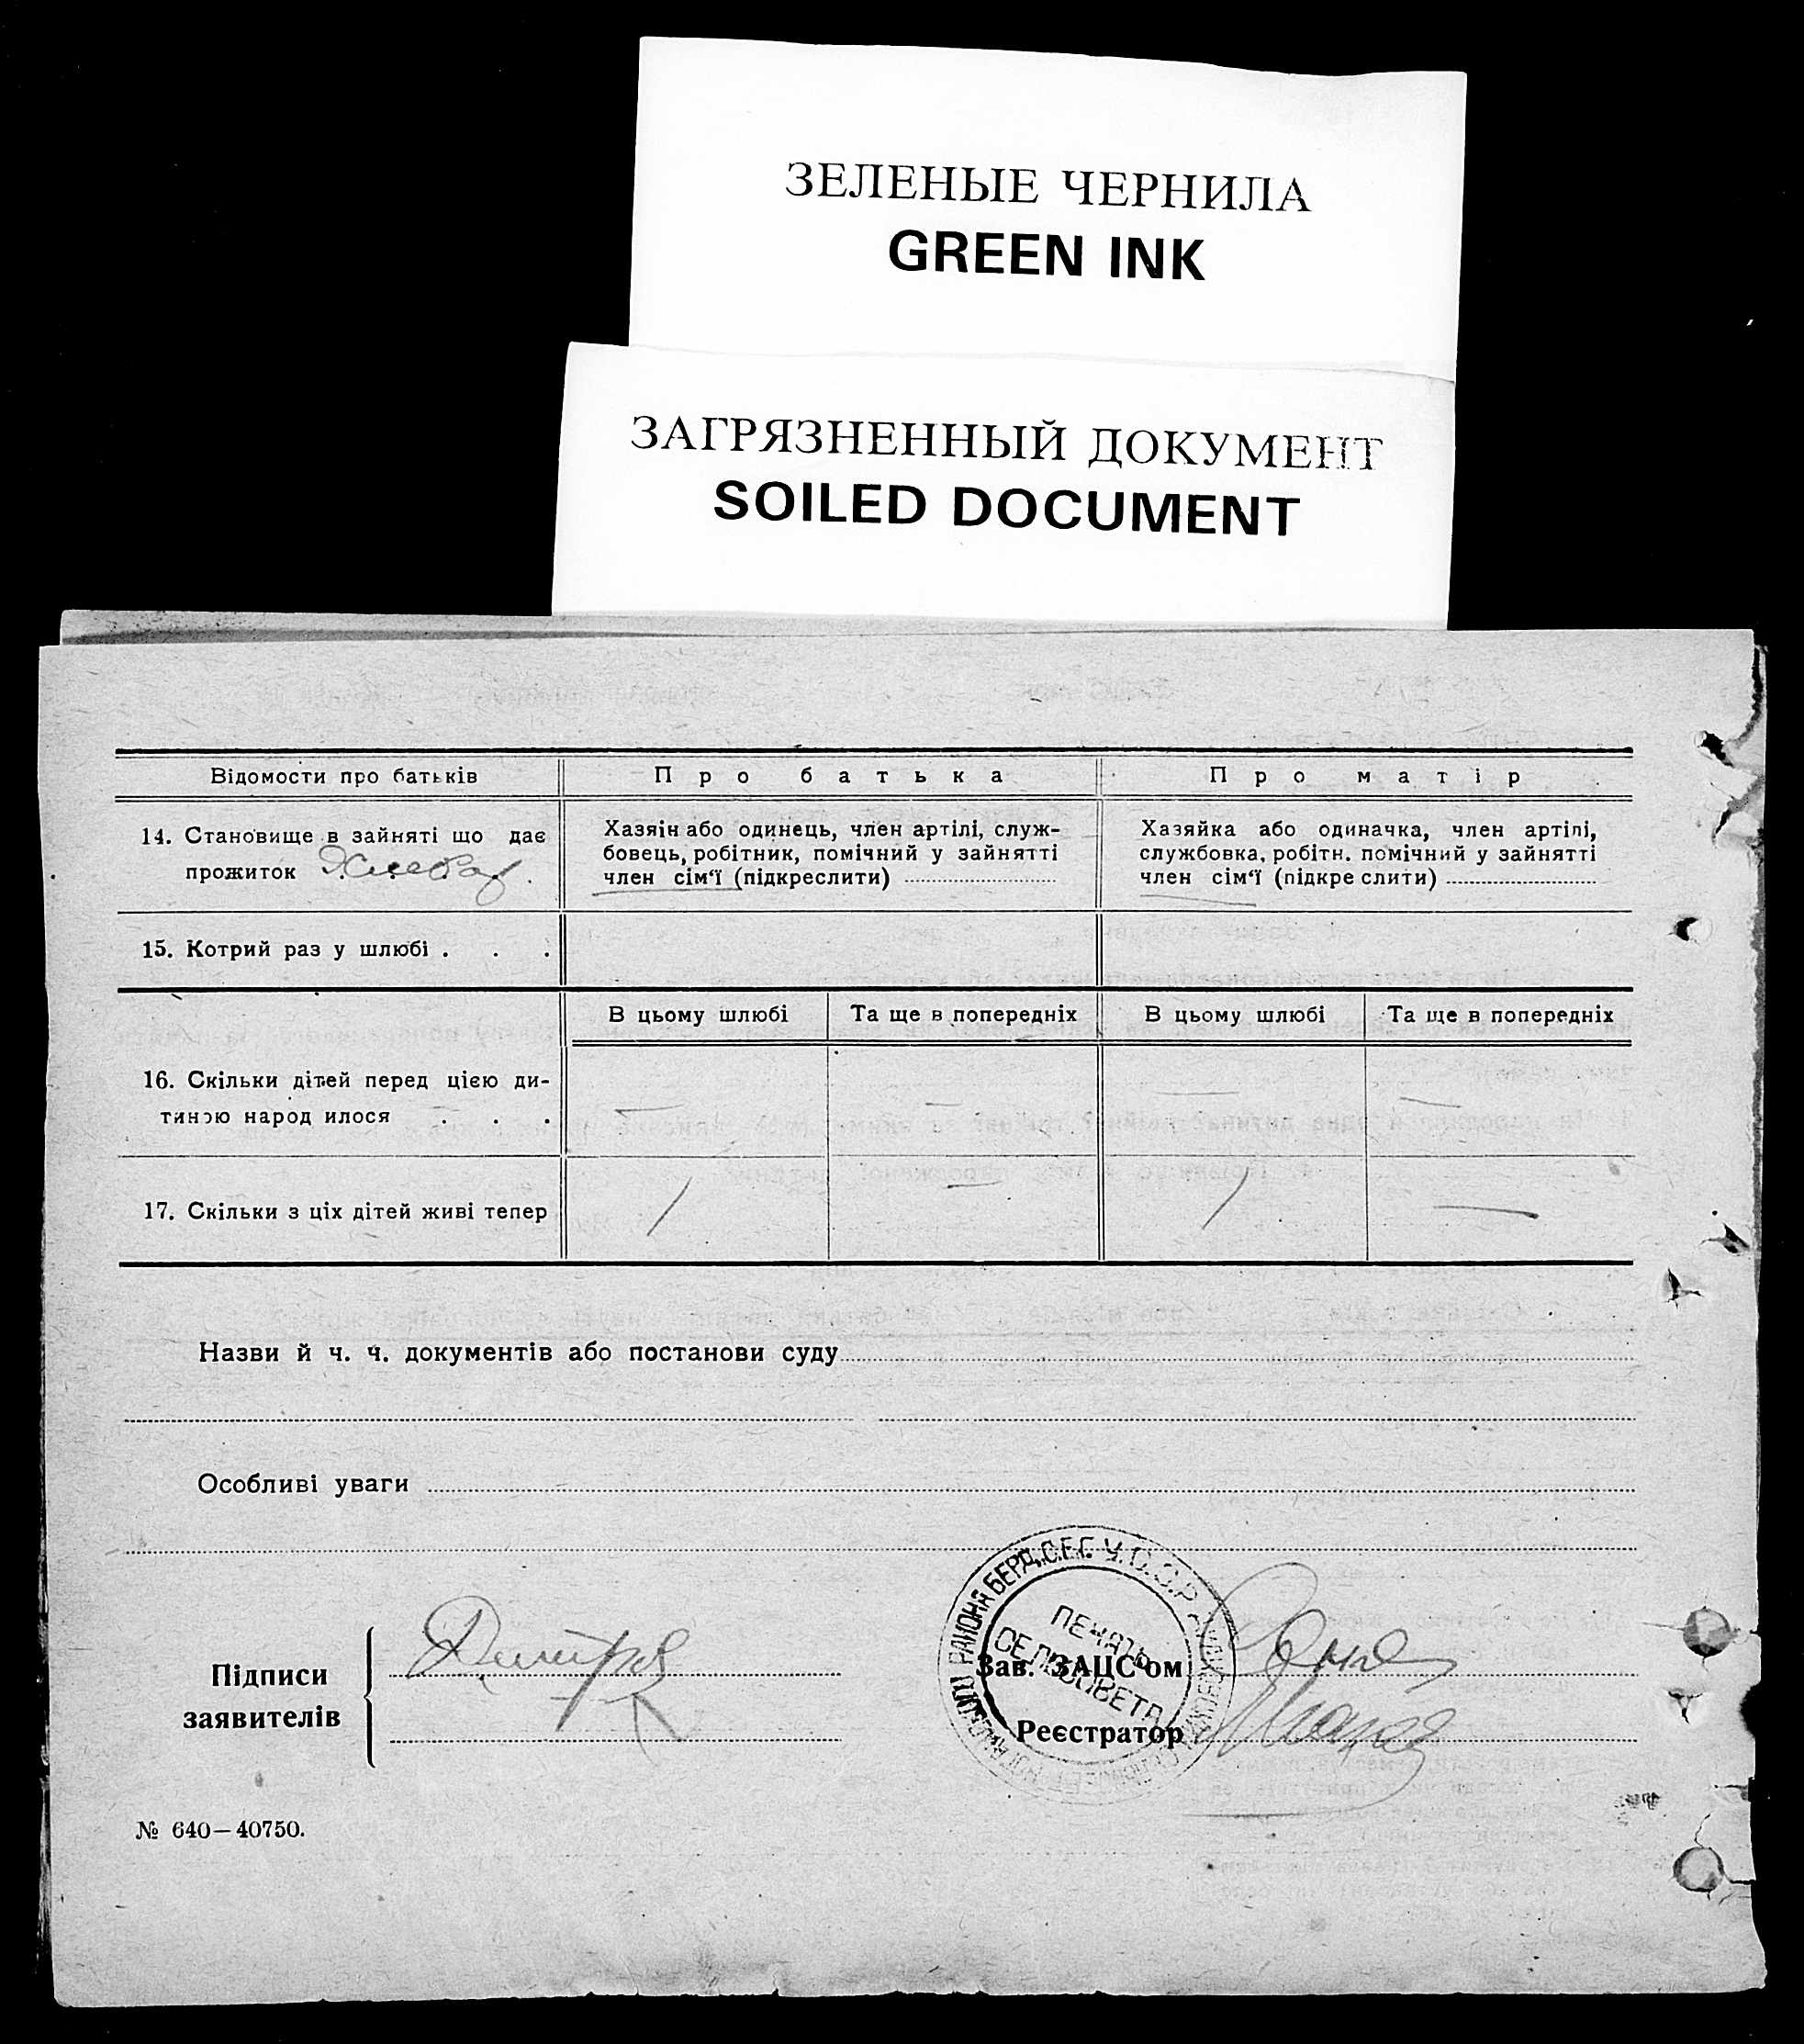 ЗЕЛЕНЫЕ ЧЕРНИЛА
GREEN INK
ЗАГРЯЗНЕННЫЙ ДОКУМЕНТ
SOILED DOCUMENT
Відомости про батьків
Про батька
Про матір
14. Становище в зайняті що дає
прожиток
Хазяїн або одинець, член артілі, служ-
бовець, робітник, помічний у зайнятті
член сім‘ї (підкреслити)
Хазяйка або одиначка, член артілі,
службовка, робітн. помічний у зайнятті
член сім‘ї (підкре слити)
15. Котрий раз у шлюбі . . .
В цьому шлюбі
Та ще в попередніх
В цьому шлюбі
Та ще в попередніх
16. Скільки дітей перед цією ди-
тиною народ илося . . .
— — — —
17. Скільки з ціх дітей живі тепер
1 — 1 —
Назви й ч. ч. документів або постанови суду
Особливі уваги
Підписи
заявителів
Зав. ЗАЦС‘ом
Реєстратор
РАЙОНА БЕРД. У.С.С.Р.
ПЕЧАТЬ
СЕЛЬСОВЕТА
№ 640—40750.